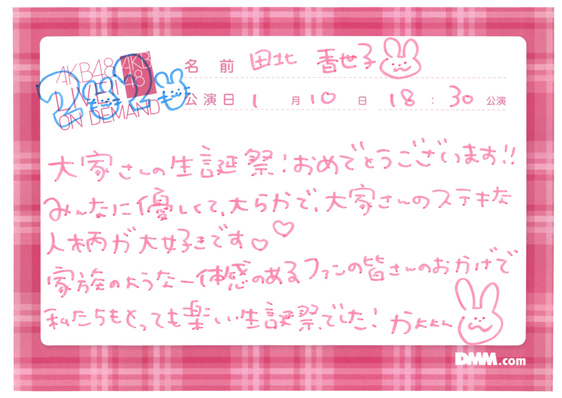 AKB48 LIVE!! ON DEMAND
AKB48
2020
名前 田北 香世子
公演日 1月10日 18:30公演
大家さんの生誕祭!おめでとうございます!!
みんなに優しくて、大らかで、大家さんのステキな
人柄が大好きです♡♡
家族のような一体感のあるファンの皆さんのおかげで
私たちもとっても楽しい生誕祭でした!
DMM.com